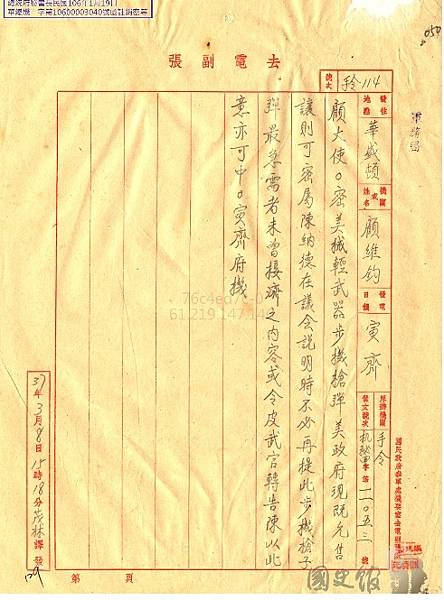 總統府秘書長民國106年1月19日
華總機一字第10600003040號函註銷密等
去電副張
號次
手令114
發往地點
華盛頓
機關或姓名
顧維鈞
發電日韻
寅齊
手令
機秘甲字第一一〇五三號
顧大使。密美械輕武器步機槍彈美政府現既允售
讓則可密屬陳納德在議會說明時不必再提此步機槍子
彈最急需者未曾接濟之內容或令皮武官轉告陳以此
意亦可中。寅齊府機
37年3月8日15時18分茂林譯發
第 頁
國史館
76c4ed7
61.219.147.14